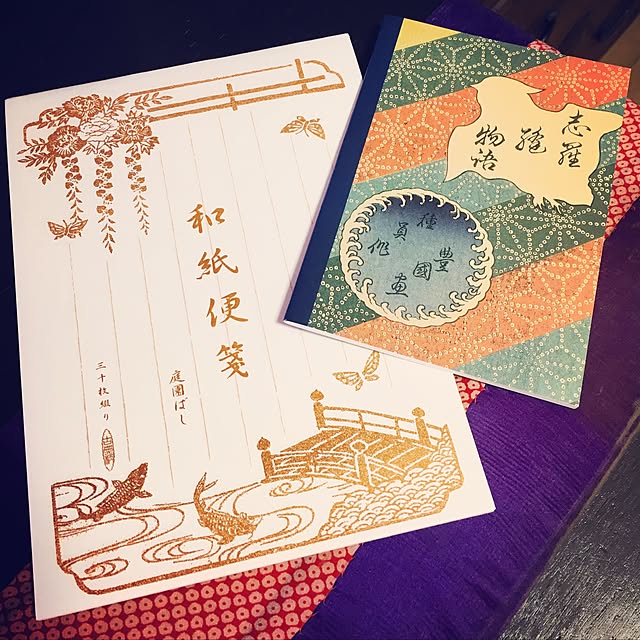 和紙便箋
庭園ばし
三十枚綴り
志羅
縫
物語
種員作
豊國画